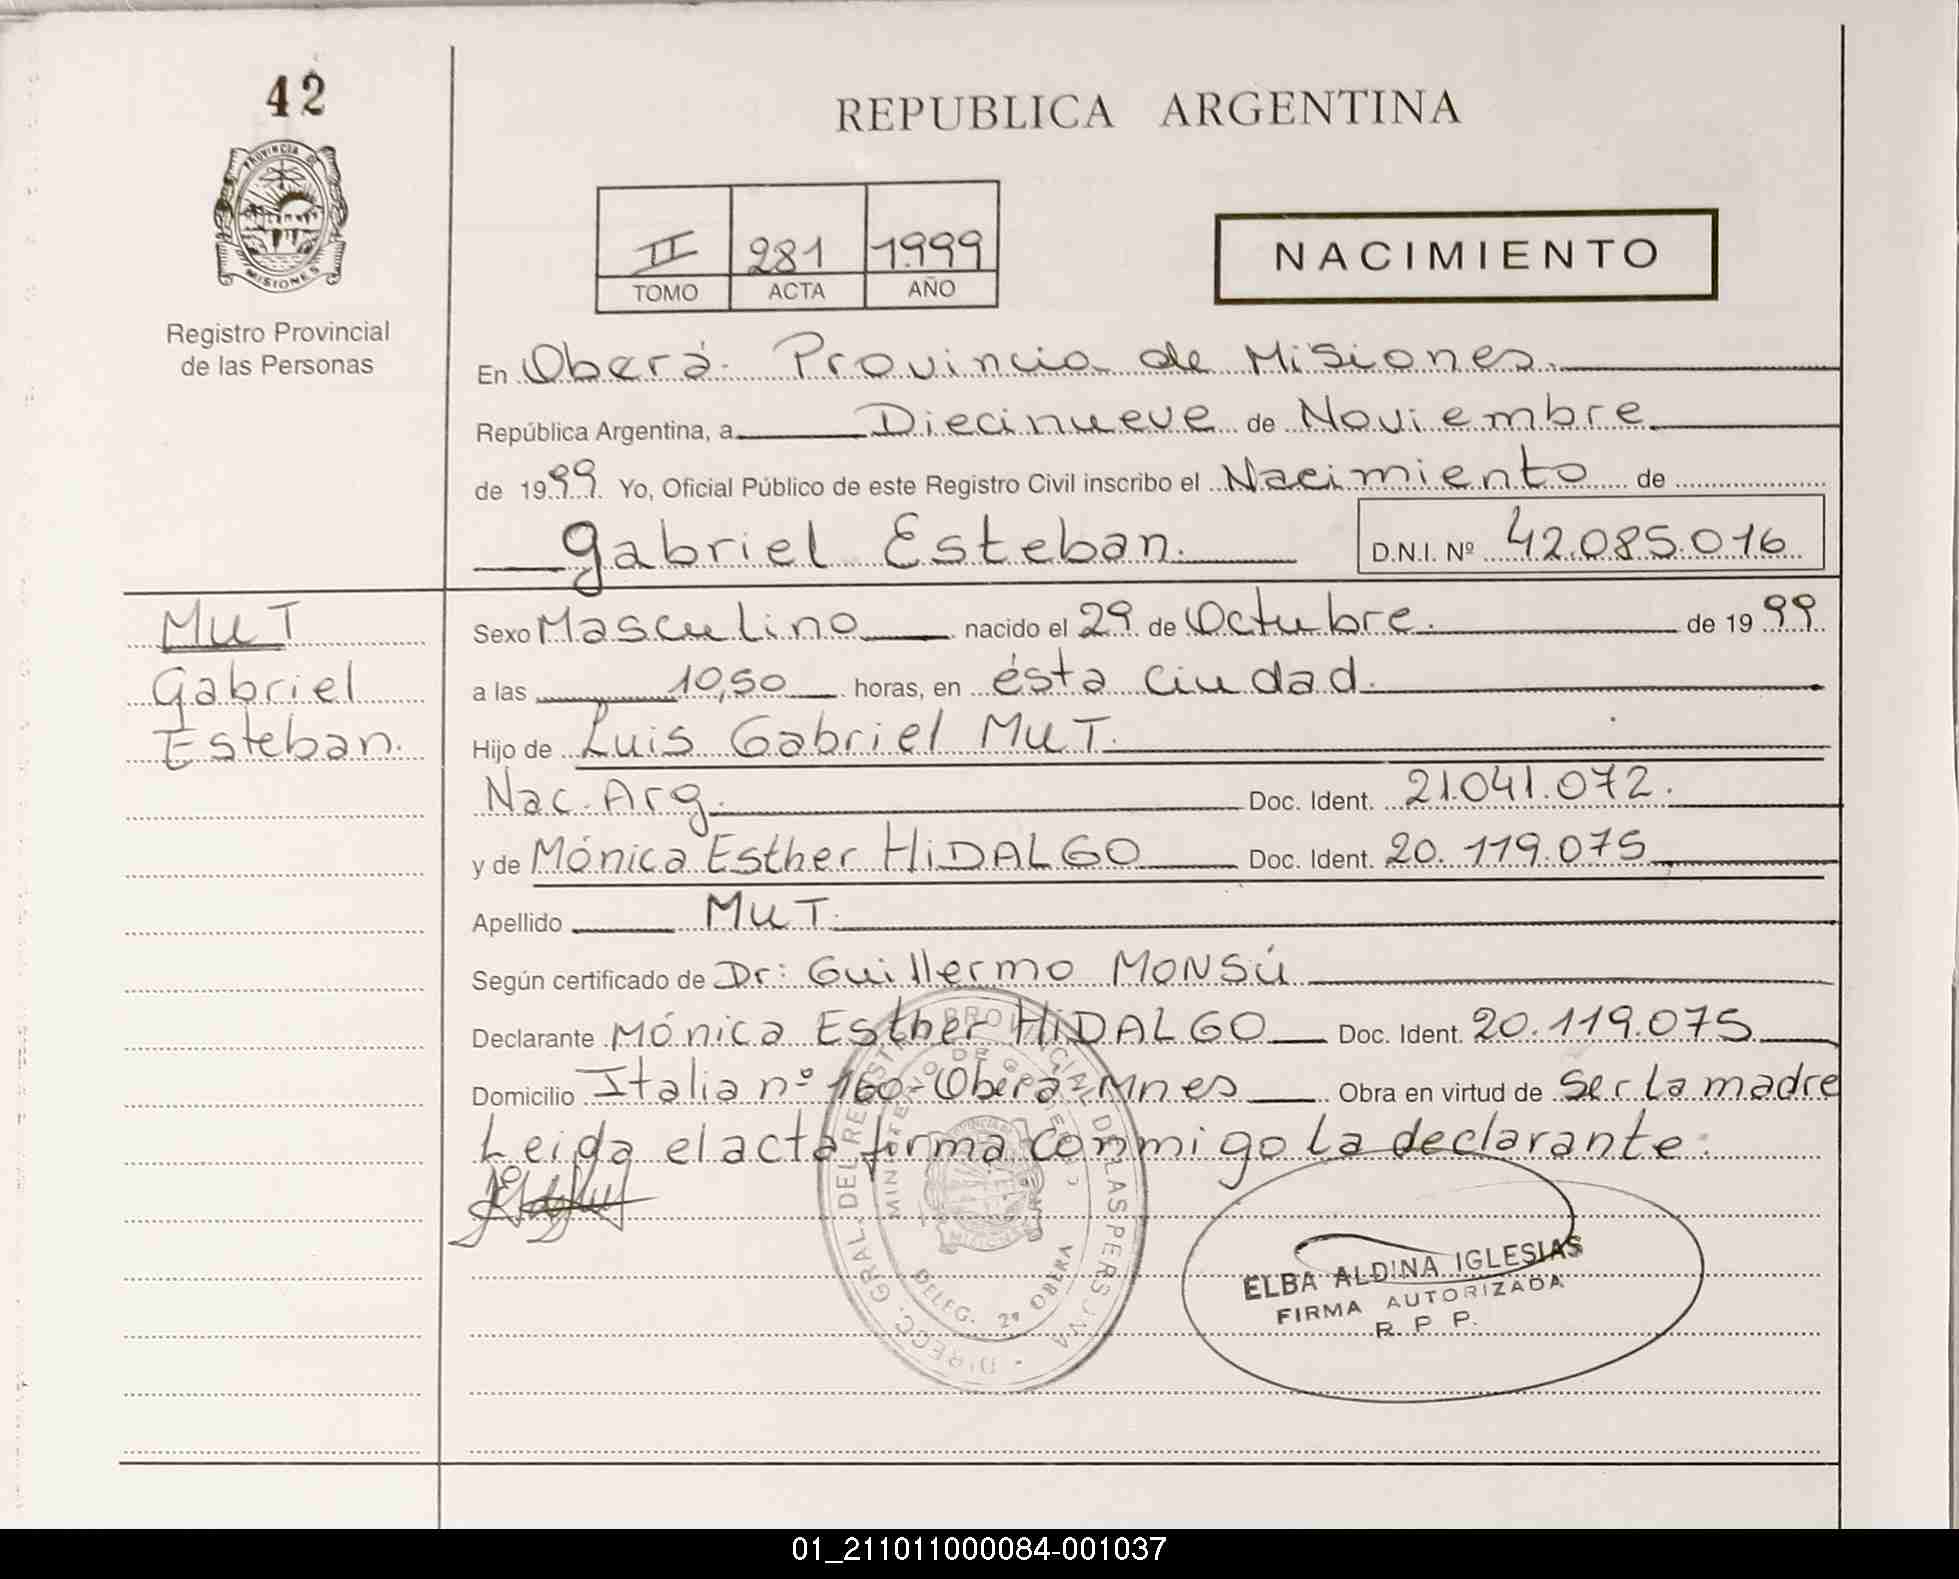 42
PROVINCIA DE
MISIONES
Registro Provincial
de las Personas
REPUBLICA ARGENTINA
II 281 1999
TOMO ACTA AÑO
NACIMIENTO
En Oberá. Provincia de Misiones.
República Argentina, a Diecinueve de Noviembre
de 1999. Yo, Oficial Público de este Registro Civil inscribo el Nacimiento de
Gabriel Esteban. D.N.I. Nº 42.085.016
MUT
Gabriel
Esteban.
Sexo Masculino nacido el 29 de Octubre. de 1999
a las 10,50 horas, en ésta ciudad.
Hijo de Luis Gabriel MUT.
Nac. Arg. Doc. Ident. 21.041.072.
y de Mónica Esther HiDALGO Doc. Ident. 20.119.075
Apellido MUT.
Según certificado de Dr: Guillermo MONSÚ
Declarante Mónica Esther HiDALGO Doc. Ident. 20.119.075
Domicilio Italia nº 160-Oberá-Mnes Obra en virtud de Ser la madre
Leida el acta firma conmigo la declarante.
DIRECC. GRAL. DEL REGISTRO PROVINCIAL DE LAS PERS
MINISTERIO DE GOBIERNO
DELEG. 2ª OBERA
MISIONES
ELBA ALDINA IGLESIAS
FIRMA AUTORIZADA
R. P. P.
01_211011000084-001037